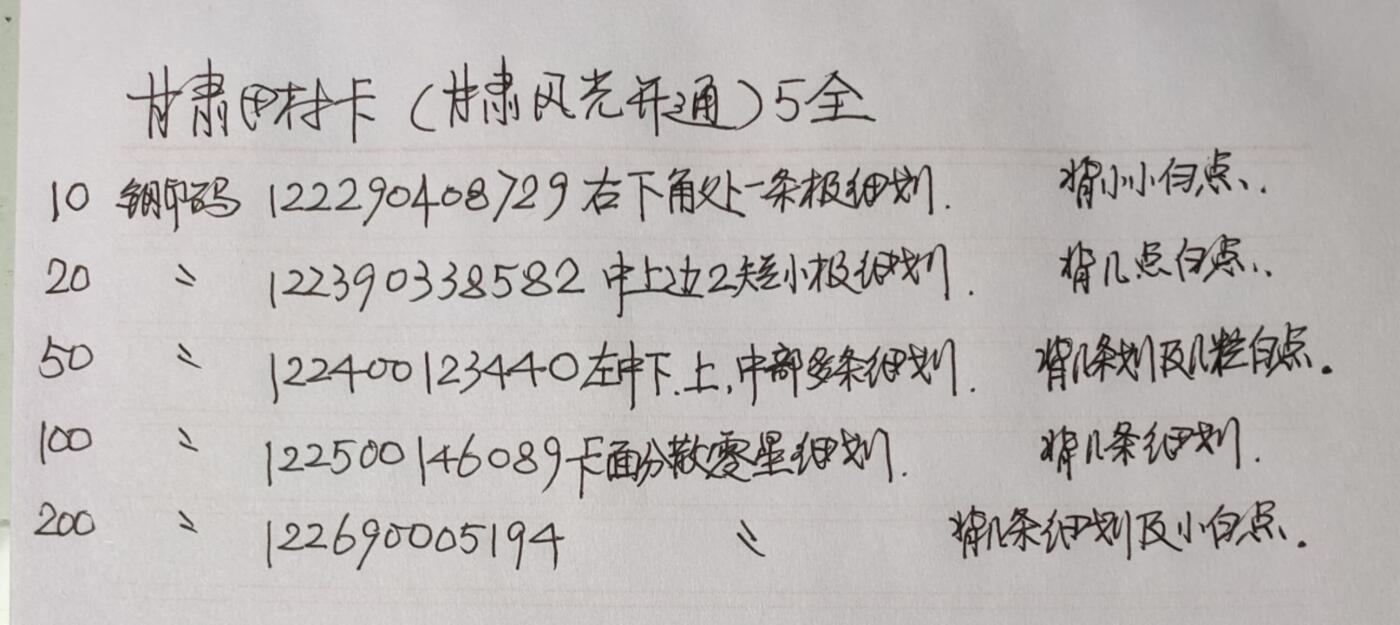 甘肃田村卡（甘肃风光开通）5全
10 钢印码 122290408729 右下角处一条极细划. 背小小白点..
20 〃 122390338582 中上边2短小极细划. 背几点白点..
50 〃 122400123440 左中下.上,中部多条细划. 背几条划及几粒白点.
100 〃 122500146089 卡面分散零星细划. 背几条细划.
200 〃 122690005194 〃 背几条细划及小白点.